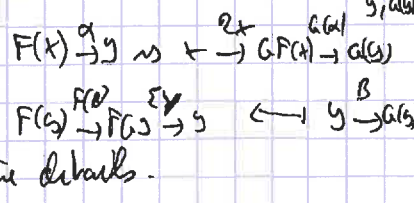 y, G(y
F(x) →^α y ⇝ x →^ηx GF(x) →^G(α) G(y)
F(y) →^F(β) FGy →^εy y ⟵ y →^β G(y
details.